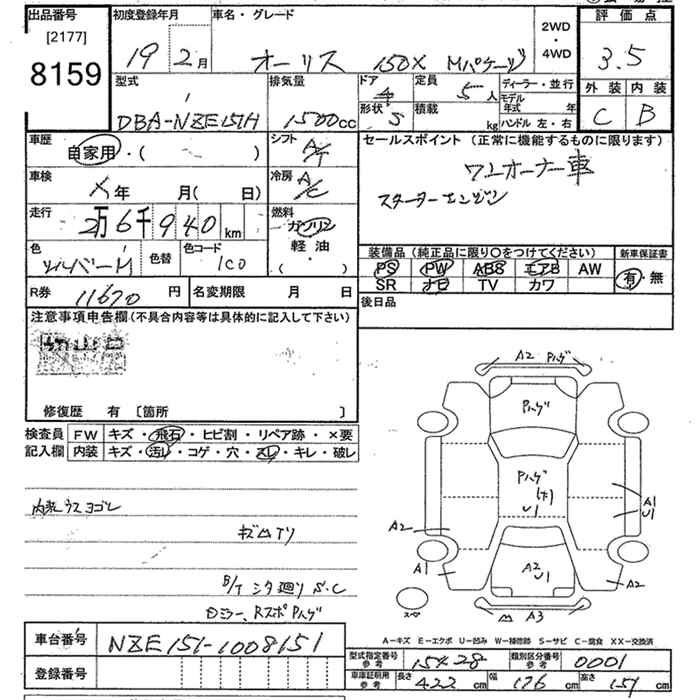 出品番号
[2177]
8159
初度登録年月
19 2月
車名・グレード
オーリス 150X Mパケージ
2WD
・
4WD
評価点
3.5
外装 内装
C B
型式
DBA-NZE151H
排気量
1500cc
ドア
4
形状
5
定員
5人
積載
kg
ディーラー・並行
モデル
年式 年
ハンドル 左・右
車歴
自家用・( )
シフト
A/T
セールスポイント (正常に機能するものに限ります)
ワンオーナー車
スターターエンジン
車検
X年 月( 日)
冷房
A/C
走行
2万6千940km
燃料
ガソリン
軽油
・( )
色
シルバーM
色替
色コード
1C0
装備品(純正品に限り○をつけてください)
新車保証書
PS PW ABS エアB AW
SR ナビ TV カワ
有・無
R券
11670円
名変期限 月 日
後日品
注意事項申告欄(不具合内容等は具体的に記入して下さい)
修復歴 有 [箇所 ]
検査員
記入欄
FW キズ・飛石・ヒビ割・リペア跡・×要
内装 キズ・汚レ・コゲ・穴・スレ・キレ・破レ
内装ウスヨゴレ
B/T シタ廻り S.C
ロミラー、Rスポ Pハゲ
A2 Pハゲ
Pハゲ
Pハゲ
U1
A1
U1
A2
A1
A2
U1
A2
A3
スペア
A-キズ E-エクボ U-凹み W-補修跡 S-サビ C-腐食 XX-交換済
車台番号
NZE151-1008151
登録番号
型式指定番号
参考
15428
類別区分番号
参考
0001
車庫証明用
参考
長さ
422cm
幅
176cm
高さ
151cm